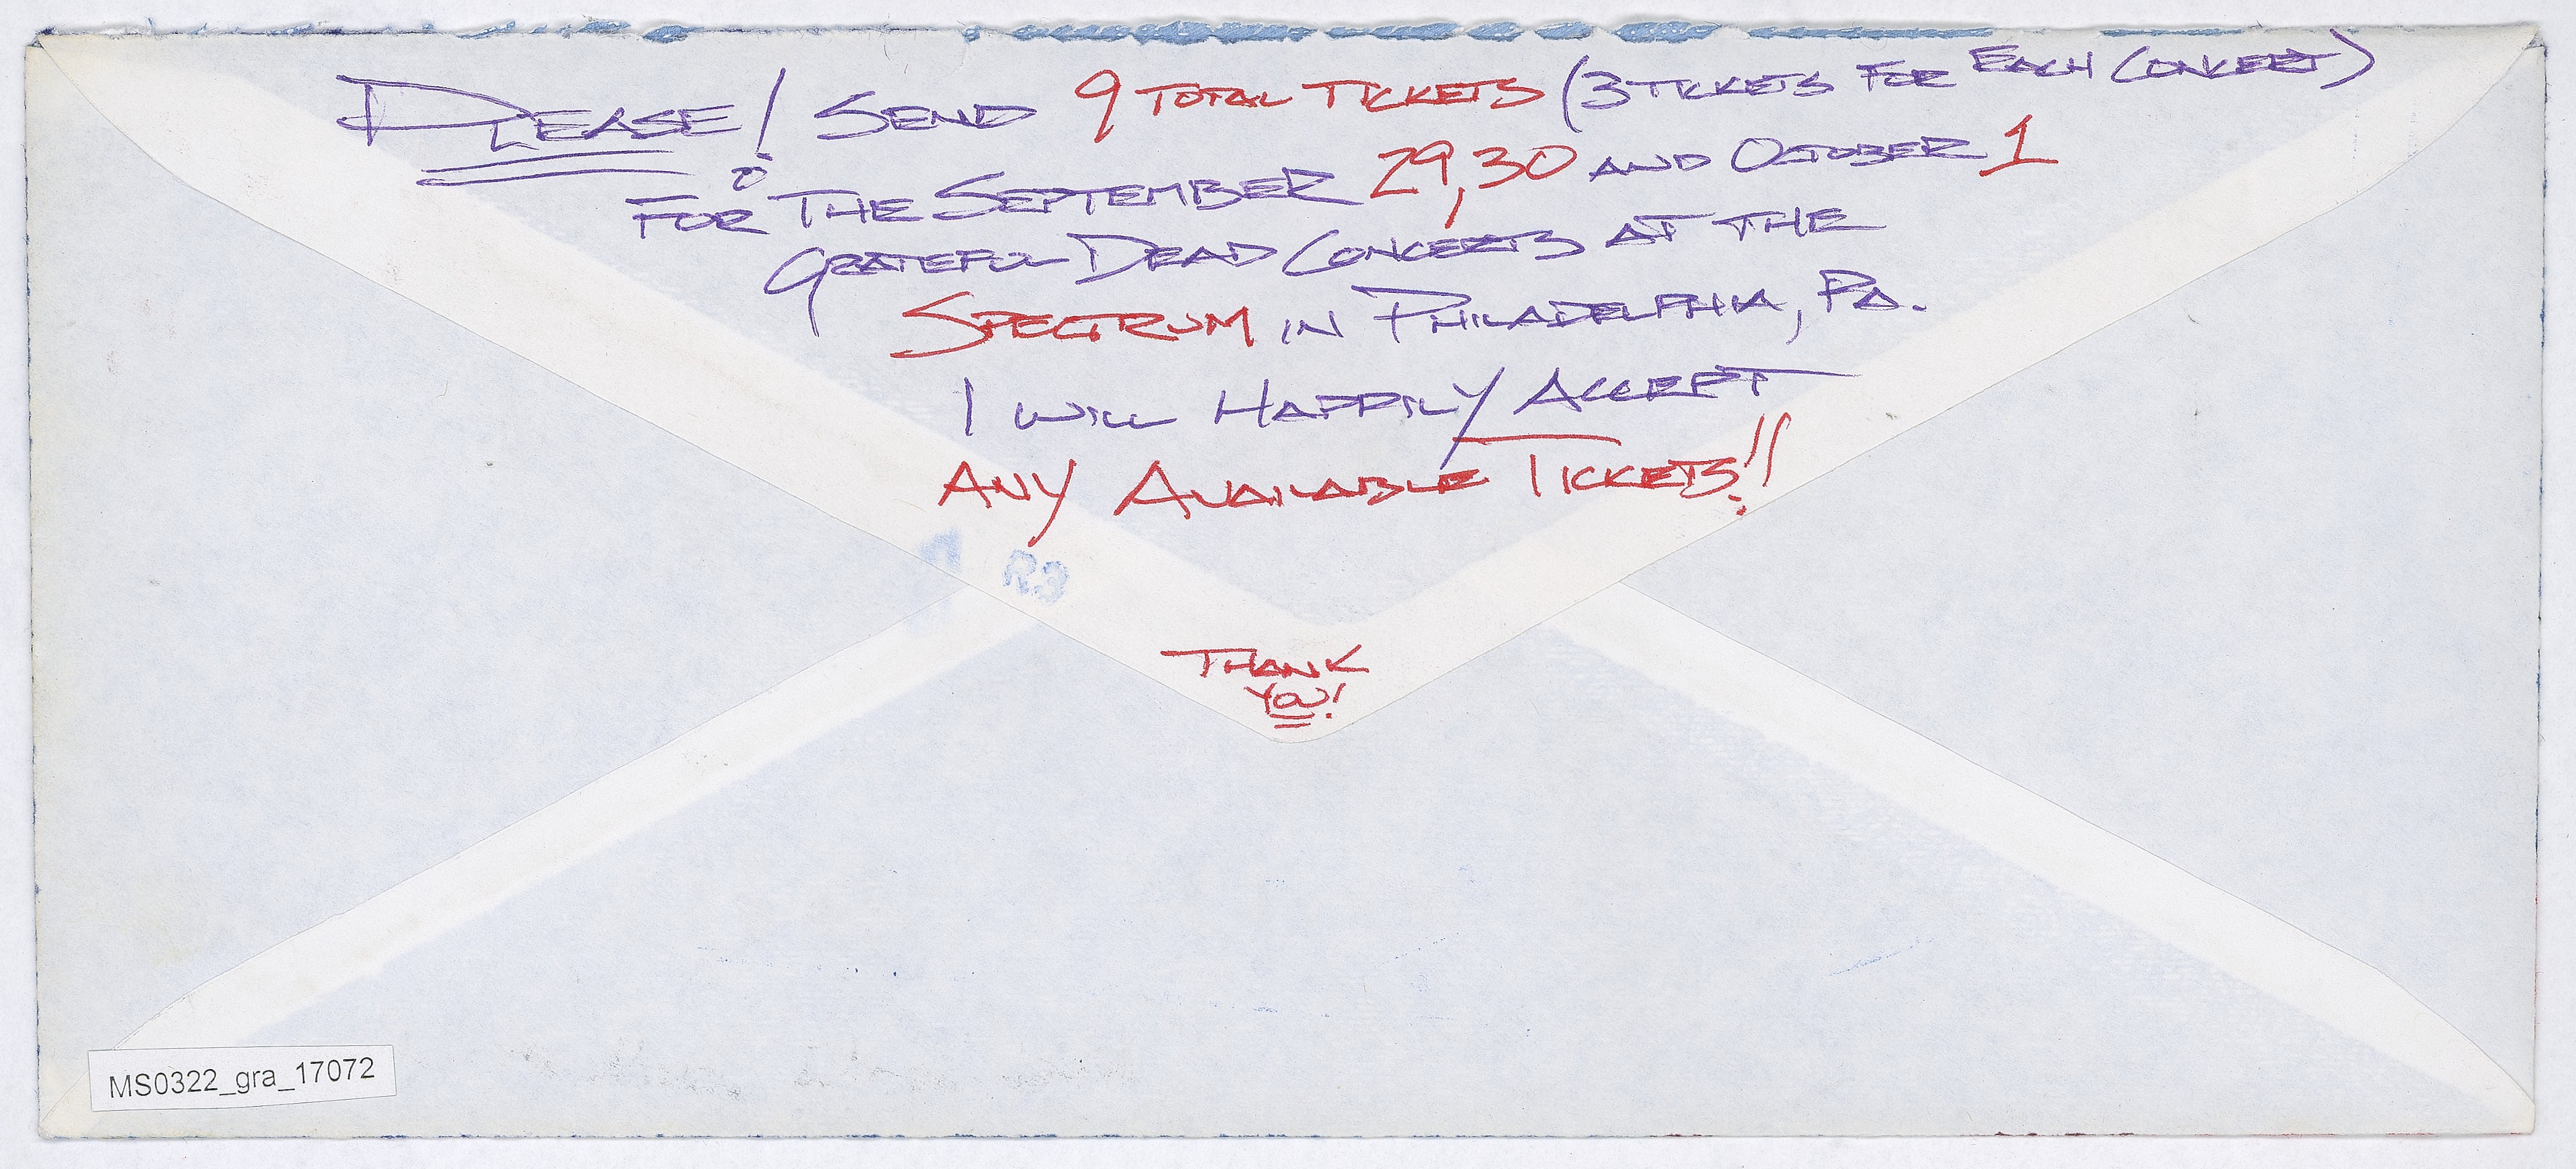 PLEASE! SEND 9 TOTAL TICKETS (3 TICKETS FOR EACH CONCERT)
FOR THE SEPTEMBER 29, 30 AND OCTOBER 1
GRATEFUL DEAD CONCERTS AT THE
SPECTRUM IN PHILADELPHIA, PA.
I WILL HAPPILY ACCEPT
ANY AVAILABLE TICKETS!!
R3
THANK
YOU!
MS0322_gra_17072